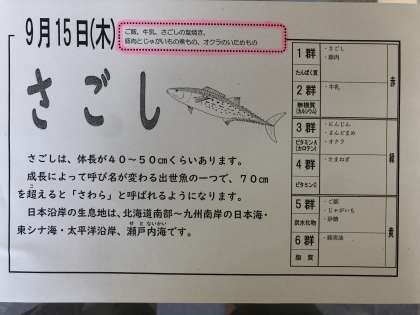 9月15日(木)
ご飯、牛乳、さごしの塩焼き、
豚肉とじゃがいもの煮もの、オクラのいためもの
さごし
さごしは、体長が40～50cmくらいあります。
成長によって呼び名が変わる出世魚の一つで、70cm
を超えると「さわら」と呼ばれるようになります。
日本沿岸の生息地は、北海道南部～九州南岸の日本海・
東シナ海・太平洋沿岸、瀬戸内海です。
せとないかい
1群
たんぱく質
・さごし
・豚肉
赤
2群
無機質
(カルシウム)
・牛乳
3群
ビタミンA
(カロテン)
・にんじん
・さんどまめ
・オクラ
緑
4群
ビタミンC
・たまねぎ
5群
炭水化物
・ご飯
・じゃがいも
・砂糖
黄
6群
脂質
・綿実油